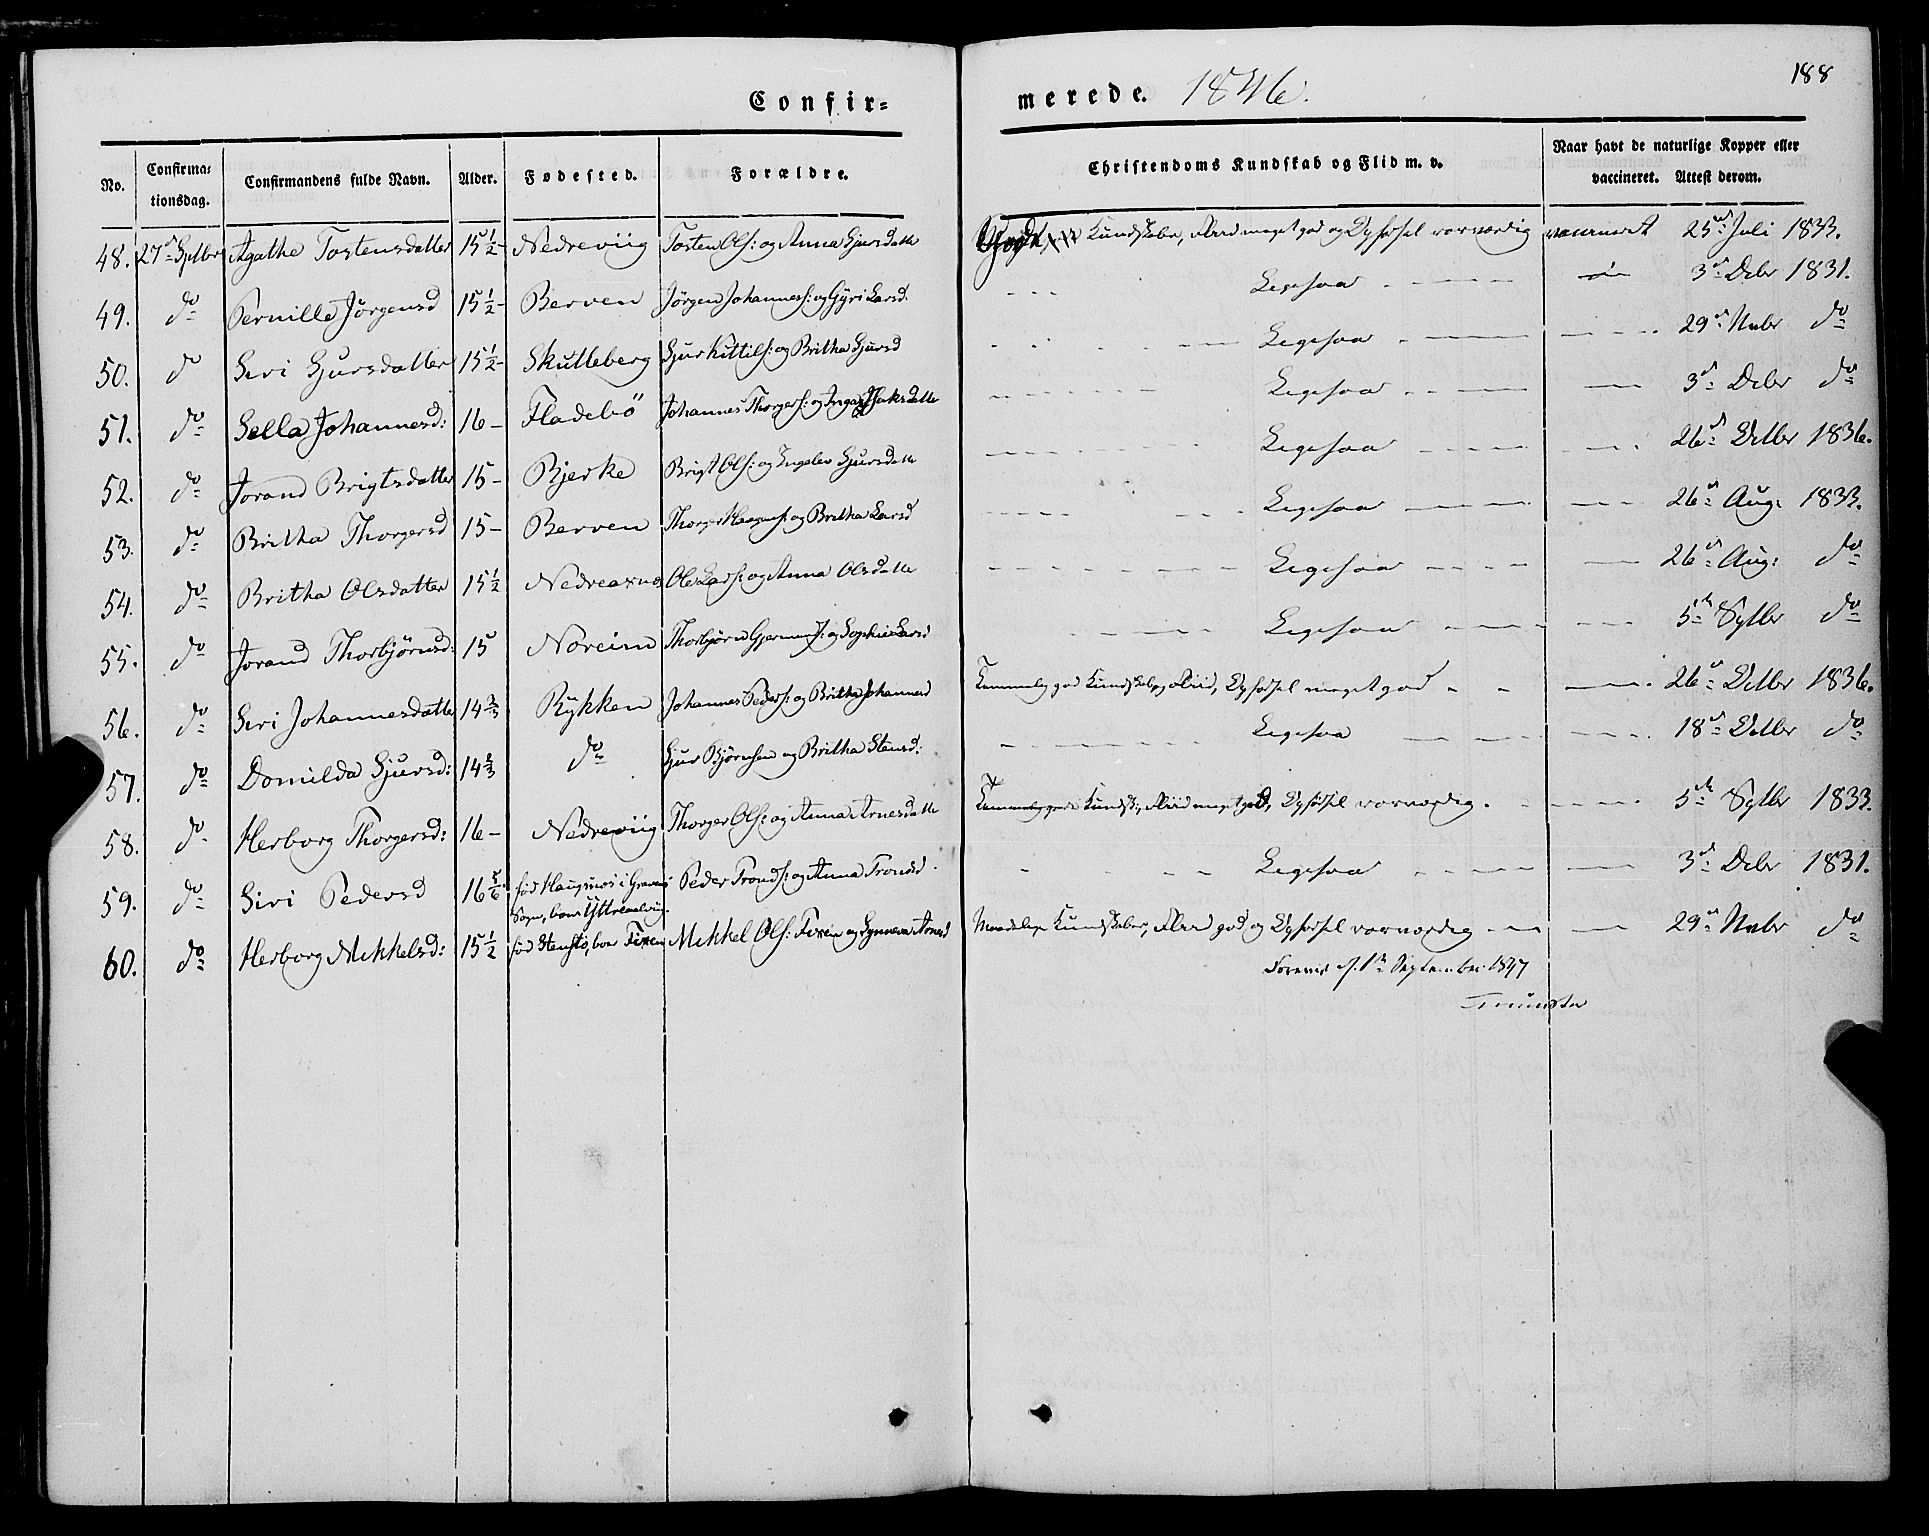 Confir=
merede. 1846.
188
No.
Confirma=
tionsdag.
Confirmandens fulde Navn.
Alder.
Fødested.
Forældre.
Christendoms Kundskab og Flid m. v.
Naar havt de naturlige Kopper eller
vaccineret. Attest derom.
48. 27de Sptbr Agathe Tostensdatter 15 1/2 Nedreviig Tosten Ols: og Anna Sjursdatte Kundskaber, Flid meget god og Opførsel vaccineret 25de Juli 1833.
49. do Pernille Jörgensd 15 1/2 Berven Jörgen Johannes: og Gyri Larsd. Ligesaa 3de Debr 1831.
50. do Siri Sjursdatter 15 1/2 Skutleberg Sjur Kittils: og Britha Sjursd Ligesaa 29de Nvbr do
51. do Sella Johannesd: 16 Fladebö Johannes Thorgers: og Inga Isaksdatte Ligesaa 3de Debr do
52. do Jorand Brigtsdatter 15 Bjerke Brigt Ols: og Engelev Sjursdatte Ligesaa 26de Octbr 1836.
53. do Britha Thorgersd 15 Berven Thorger Haagens: og Britha Larsd Ligesaa 26de Aug: 1833.
54. do Britha Olsdatter 15 1/2 Nedreaxnes Ole Lars: og Anna Olsdatte Ligesaa 26de Aug: do
55. do Jorand Thorbjörnsd: 15 Noreim Thorbjörn Gjermunds: og Sophie Larsd Ligesaa 5te Sptbr do
56. do Siri Johannesdatte 14 2/3 Rykken Johannes Peders: og Britha Johannesd Temmelig god Kundskab og Flid, Opførsel meget god 26de Octbr 1836.
57. do Domilda Sjursd: 14 2/3 do Sjur Bjørnsen og Britha Stensd: Ligesaa 18de Octbr do
58. do Herborg Thorgersd: 16 Nedreviig Thorger Ols: og Anna Arnesdatte Temmelig gode Kundsk:, Flid meget god, Opførsel 5te Sptbr 1833.
59. do Siri Pedersd 16 5/6 fød i Gravens Peder Tronds: og Anna Trondsd. Ligesaa 3de Debr 1831.
Sogn, boer
60. do Herborg Mikkelsd: 15 1/2 fød Stenstø, boer Fixen Mikkel Ols: Fixen og Synneva Arnesd Maadelige Kundskaber, Flid god og Opførsel 29de Nvbr do
September 1847